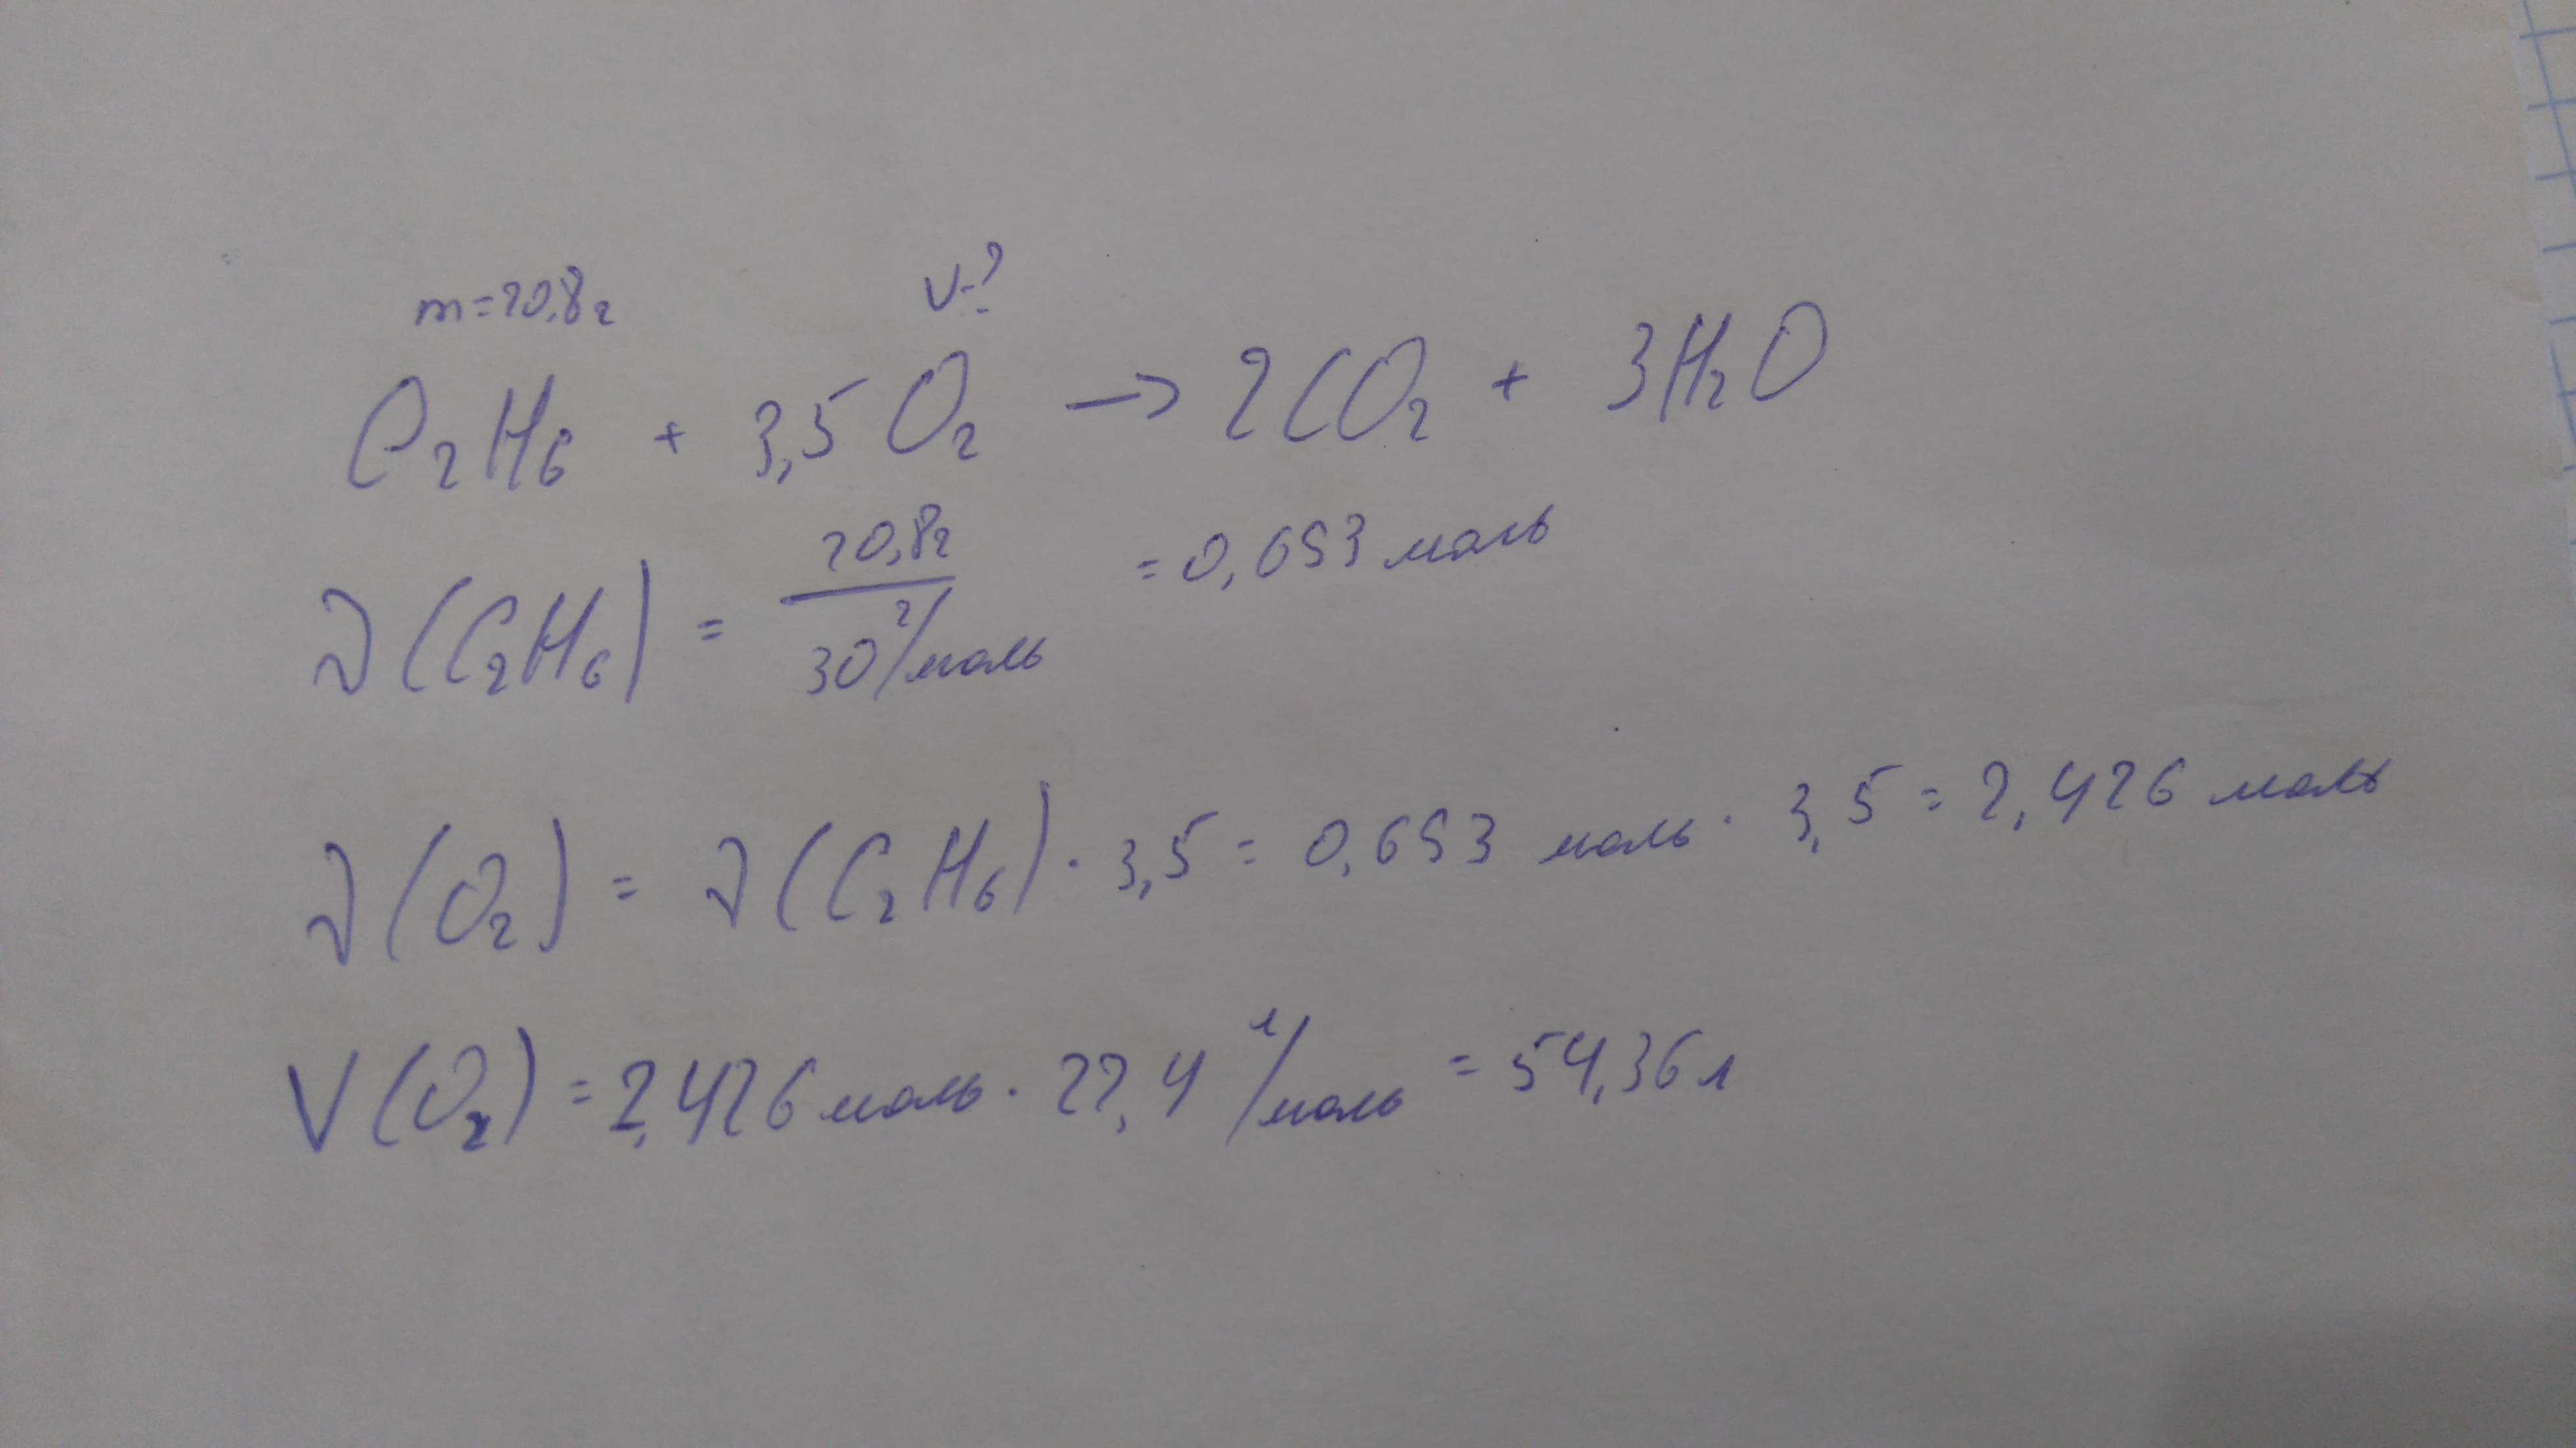 m=20,8г V-?
C₂H₆ + 3,5 O₂ → 2CO₂ + 3H₂O
ν(C₂H₆) = 20,8г / 30 г/моль = 0,693 моль
ν(O₂) = ν(C₂H₆) · 3,5 = 0,693 моль · 3,5 = 2,426 моль
V(O₂) = 2,426 моль · 22,4 л/моль = 54,36 л